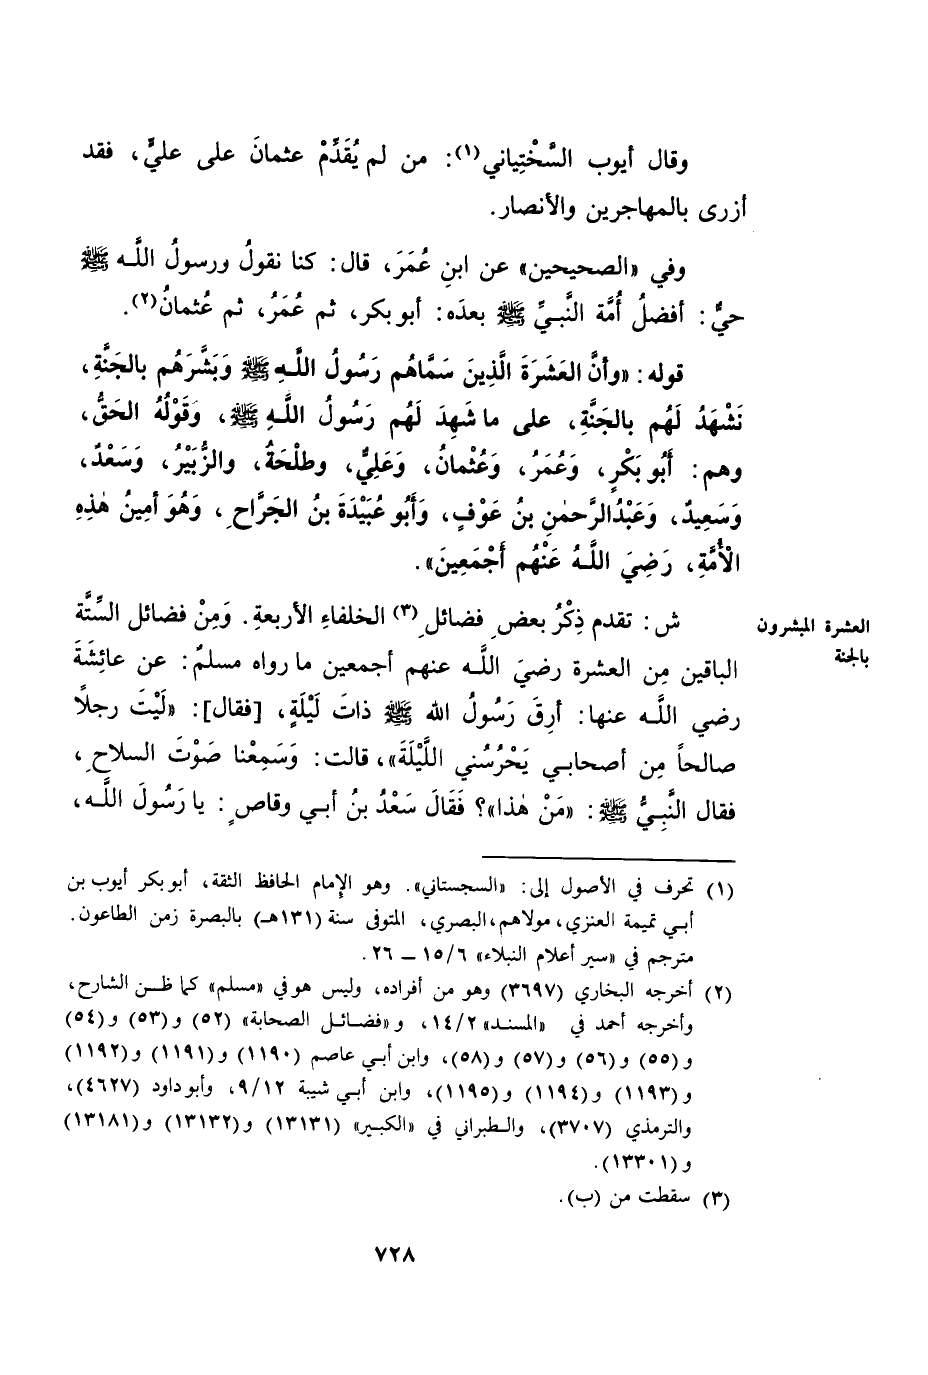 وقال أيوب السَّخْتِياني(١): من لم يُقَدِّمْ عثمانَ على عليٍّ، فقد
أزرى بالمهاجرين والأنصار.
وفي «الصحيحين» عن ابنِ عُمَرَ، قال: كنا نقولُ ورسولُ اللَّـه ﷺ
حيٌّ: أفضلُ أُمَّة النَّبيِّ ﷺ بعدَه: أبو بكر، ثم عُمَرُ، ثم عُثمانُ(٢).
قوله: «وأنَّ العَشَرَةَ الَّذِينَ سَمَّاهُم رَسُولُ اللَّـهِ ﷺ وَبَشَّرَهُم بالجَنَّةِ،
نَشْهَدُ لَهُم بالجَنَّةِ، على ما شَهِدَ لَهُم رَسُولُ اللَّـهِ ﷺ، وَقَوْلُهُ الحَقُّ،
وهم: أَبُو بَكْرٍ، وَعُمَرُ، وَعُثْمانُ، وَعَلِيٌّ، وطلْحَةُ، والزُّبَيْرُ، وَسَعْدٌ،
وَسَعِيدٌ، وَعَبْدُ الرَّحمٰنِ بنُ عَوْفٍ، وَأَبُو عُبَيْدَةَ بنُ الجَرَّاحِ، وَهُوَ أمِينُ هٰذِهِ
الْأُمَّةِ، رَضِيَ اللَّـهُ عَنْهُم أَجْمَعِينَ».
العشرة المبشرون بالجنة
ش: تقدم ذِكْرُ بعضِ فضائلِ(٣) الخلفاءِ الأربعةِ. وَمِنْ فضائل السِّتَّة
الباقين مِن العشرة رضيَ اللَّـه عنهم أجمعين ما رواه مسلمٌ: عن عائِشَةَ
رضي اللَّـه عنها: أرِقَ رَسُولُ الله ﷺ ذاتَ لَيْلَةٍ، [فقال]: «لَيْتَ رجلاً
صالحاً مِن أصحابي يَحْرُسُني اللَّيْلَةَ»، قالت: وَسَمِعْنا صَوْتَ السلاحِ،
فقال النَّبِيُّ ﷺ: «مَنْ هٰذا»؟ فَقَالَ سَعْدُ بنُ أبي وقاصٍ: يا رَسُولَ اللَّـه،
(١) تحرف في الأصول إلى: «السجستاني». وهو الإمام الحافظ الثقة، أبو بكر أيوب بن
أبي تميمة العنزي، مولاهم، البصري، المتوفى سنة (١٣١هـ) بالبصرة زمن الطاعون.
مترجم في «سير أعلام النبلاء» ١٥/٦ – ٢٦.
(٢) أخرجه البخاري (٣٦٩٧) وهو من أفراده، وليس هو في «مسلم» كما ظن الشارح،
وأخرجه أحمد في «المسند» ١٤/٢، و«فضائل الصحابة» (٥٢) و(٥٣) و(٥٤)
و(٥٥) و(٥٦) و(٥٧) و(٥٨)، وابن أبي عاصم (١١٩٠) و(١١٩١) و(١١٩٢)
و(١١٩٣) و(١١٩٤) و(١١٩٥)، وابن أبي شيبة ٩/١٢، وأبو داود (٤٦٢٧)،
والترمذي (٣٧٠٧)، والطبراني في «الكبير» (١٣١٣١) و(١٣١٣٢) و(١٣١٨١)
و(١٣٣٠١).
(٣) سقطت من (ب).
٧٢٨